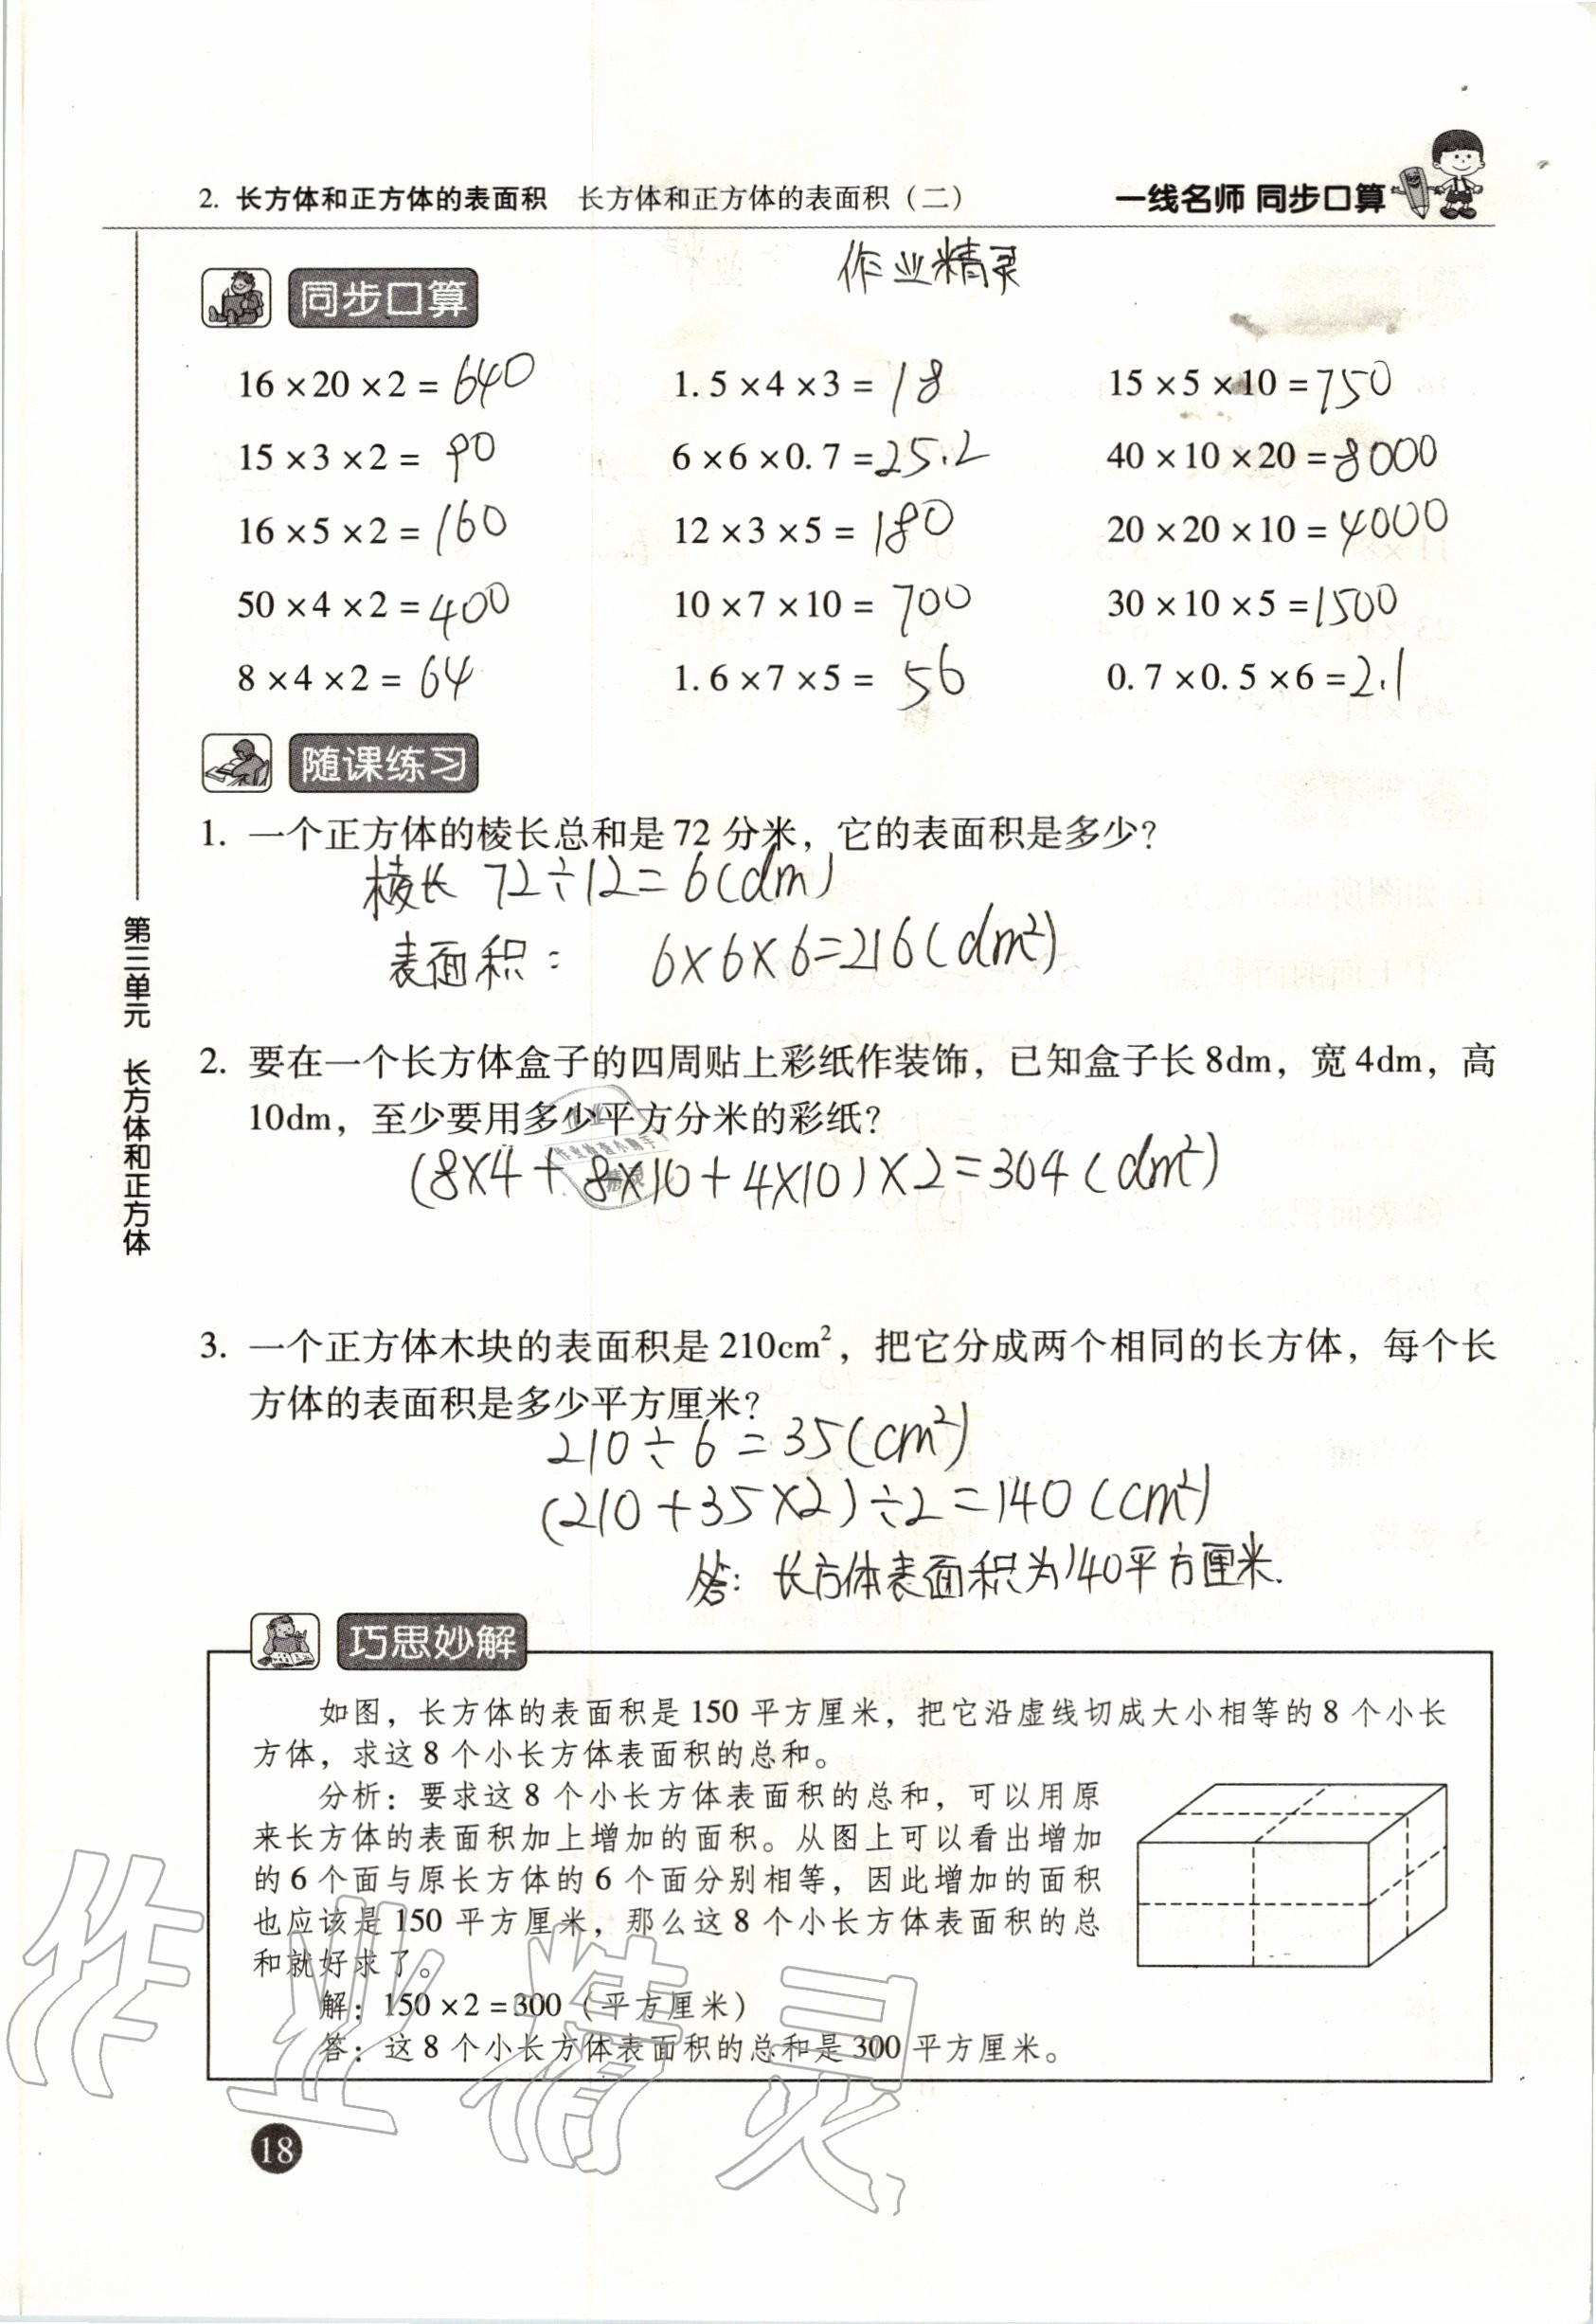 2. 长方体和正方体的表面积 长方体和正方体的表面积（二）
一线名师 同步口算
作业精灵
同步口算
16×20×2=640 1.5×4×3=18 15×5×10=750
15×3×2=90 6×6×0.7=25.2 40×10×20=8000
16×5×2=160 12×3×5=180 20×20×10=4000
50×4×2=400 10×7×10=700 30×10×5=1500
8×4×2=64 1.6×7×5=56 0.7×0.5×6=2.1
随课练习
1. 一个正方体的棱长总和是72分米，它的表面积是多少？
棱长 72÷12=6(dm)
表面积： 6×6×6=216(dm²)
2. 要在一个长方体盒子的四周贴上彩纸作装饰，已知盒子长8dm，宽4dm，高
10dm，至少要用多少平方分米的彩纸？
(8×4+8×10+4×10)×2=304(dm²)
作业
作业检查小助手
精灵
3. 一个正方体木块的表面积是210cm²，把它分成两个相同的长方体，每个长
方体的表面积是多少平方厘米？
210÷6=35(cm²)
(210+35×2)÷2=140(cm²)
答：长方体表面积为140平方厘米.
巧思妙解
如图，长方体的表面积是150平方厘米，把它沿虚线切成大小相等的8个小长
方体，求这8个小长方体表面积的总和。
分析：要求这8个小长方体表面积的总和，可以用原
来长方体的表面积加上增加的面积。从图上可以看出增加
的6个面与原长方体的6个面分别相等，因此增加的面积
也应该是150平方厘米，那么这8个小长方体表面积的总
和就好求了。
解：150×2=300（平方厘米）
答：这8个小长方体表面积的总和是300平方厘米。
第三单元 长方体和正方体
作业精灵
18